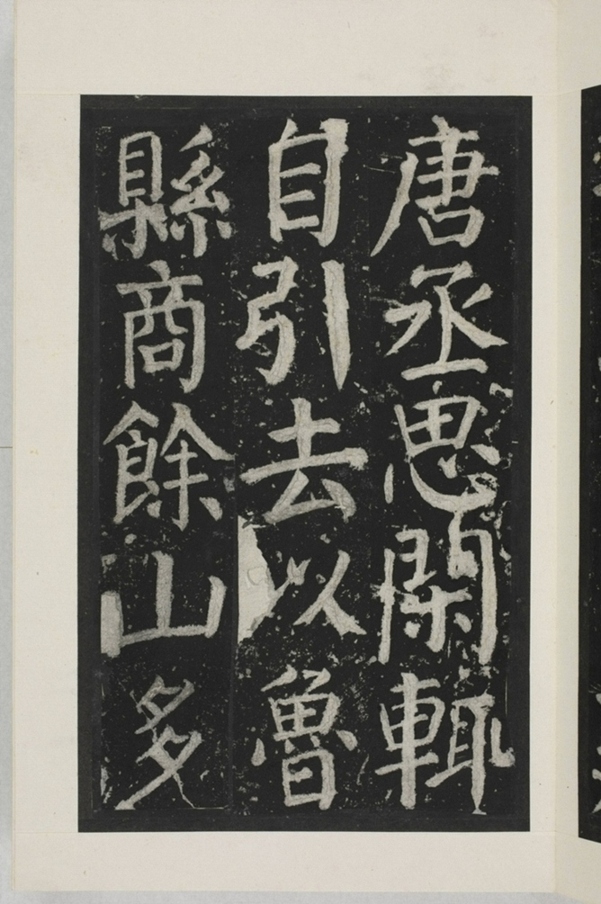 唐丞思閑輒
自引去以魯
縣商餘山多